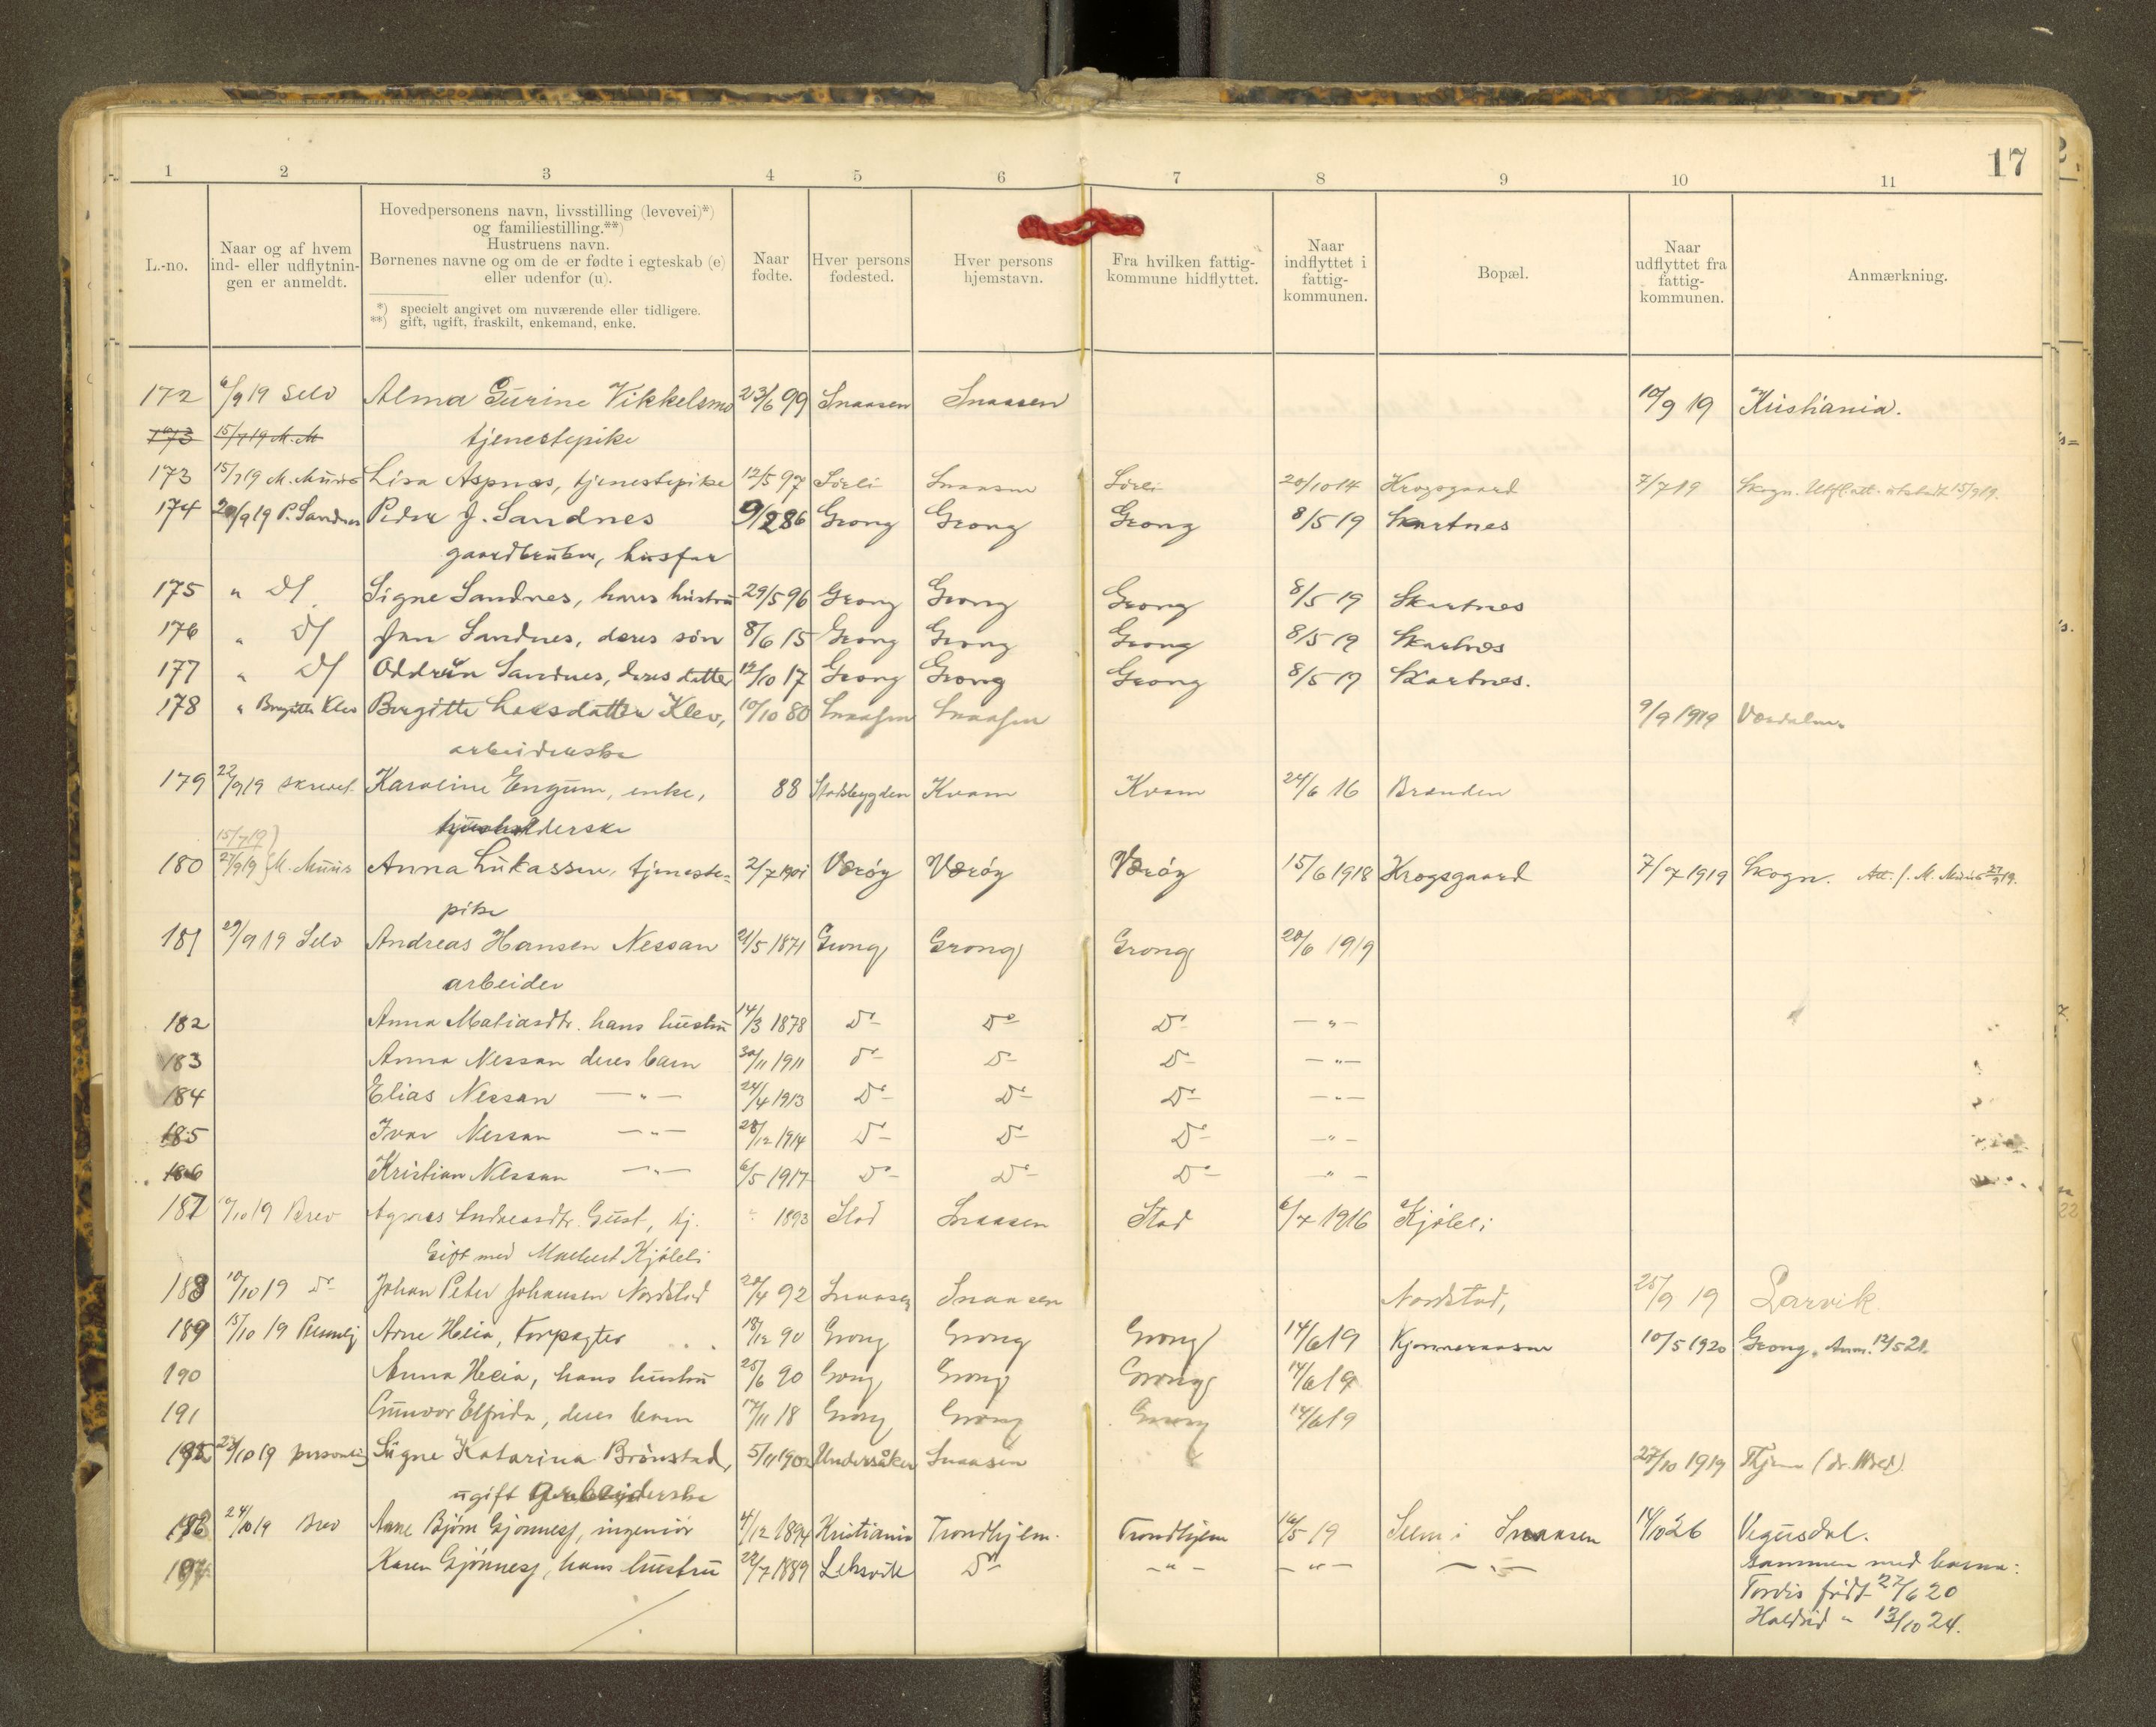 17
1 2 3 4 5 6 7 8 9 10 11
L.-no.
Naar og af hvem ind- eller udflytnin- gen er anmeldt.
Hovedpersonens navn, livsstilling (levevei)*) og familiestilling.**) Hustruens navn. Børnenes navne og om de er fødte i egteskab (e) eller udenfor (u).
*) specielt angivet om nuværende eller tidligere.
**) gift, ugift, fraskilt, enkemand, enke.
Naar fødte.
Hver persons fødested.
Hver persons hjemstavn.
Fra hvilken fattig- kommune hidflyttet.
Naar indflyttet i fattig- kommunen.
Bopæl.
Naar udflyttet fra fattig- kommunen.
Anmærkning.
172 6/9 19 Selv Alma Gurine Vikkelsmo 23/6 99 Snaasen Snaasen 10/9 19 Kristiania.
173 15/7 19 M. M tjenestepike
173 15/7 19 M. Muus Lisa Aspnes, tjenestepike 12/5 97 Sörli Snaasen Sörli 20/10 14 Krogsgaard 7/7 19 Skogn. 15/9 19.
174 20/9 19 P. Sandnes Peder J. Sandnes 9/2 86 Grong Grong Grong 8/5 19 Skartnes
gaardbruker, husfar
175 " Df Signe Sandnes, hans hustru 29/5 96 Grong Grong Grong 8/5 19 Skartnes
176 " Df Jan Sandnes, deres sön 8/6 15 Grong Grong Grong 8/5 19 Skartnes
177 " Df Oddrun Sandnes, deres datter 12/10 17 Grong Grong Grong 8/5 19 Skartnes.
178 " Birgitte Klev Birgitte Larsdatter Klev, 10/10 80 Snaasen Snaasen 9/9 1919 Værdalen.
arbeiderske
179 22/9 19 skrevet. Karoline Engum, enke, 88 Stadsbygden Kvam Kvam 24/6 16 Brænden
husholderske
15/7 19
180 27/9 19 M. Muus Anna Lukassen, tjeneste- 2/7 1901 Væröy Væröy Væröy 15/6 1918 Krogsgaard 7/7 1919 Skogn. Att. f. M. Muus 27/9 19.
pike
181 29/9 19 Selv Andreas Hansen Nessan 21/5 1871 Grong Grong Grong 20/6 1919
arbeider
182 Anna Matiasdtr. hans hustru 14/3 1878 Do Do Do — " —
183 Anna Nessan deres barn 30/11 1911 Do Do Do — " —
184 Elias Nessan — " — 24/4 1913 Do Do Do — " —
185 Ivar Nessan — " — 28/12 1914 Do Do Do — " —
186 Kristian Nessan — " — 6/5 1917 Do Do Do — " —
187 10/10 19 Brev Agnes Andreasdtr. Gust, tj. " 1893 Stod Snaasen Stod 6/7 1916 Kjöleli
Gift med Kjöleli
188 10/10 19 Do Johan Peter Johansen Nordstad 20/4 92 Snaasen Snaasen Nordstad, 25/9 19 Larvik
189 15/10 19 Personlig Arne Heia, Forpagter 18/12 90 Grong Grong Grong 14/6 19 10/5 1920 Grong. Anm. 12/5 21.
190 Anna Heia, hans hustru 25/6 90 Grong Grong Grong 14/6 19
191 Gunvor Elfrida, deres barn 17/11 18 Grong Grong Grong 14/6 19
195 22/10 19 personlig Signe Katarina Brönstad, 5/11 1902 Undersåker Snaasen 27/10 1919
ugift arbeiderske
196 24/10 19 Brev Arne Bjorn Gjönnesf, ingeniör 4/12 1894 Kristiania Trondhjem. Trondhjem 16/5 19 Seem i Snaasen 14/10 26 Vegusdal.
197 Karen Gjönnesf, hans hustru 22/7 1889 Leksvik Do — " — — " — — " — Sammen med barna:
Tordis född 27/6 20
Haldrid " 13/10 24.